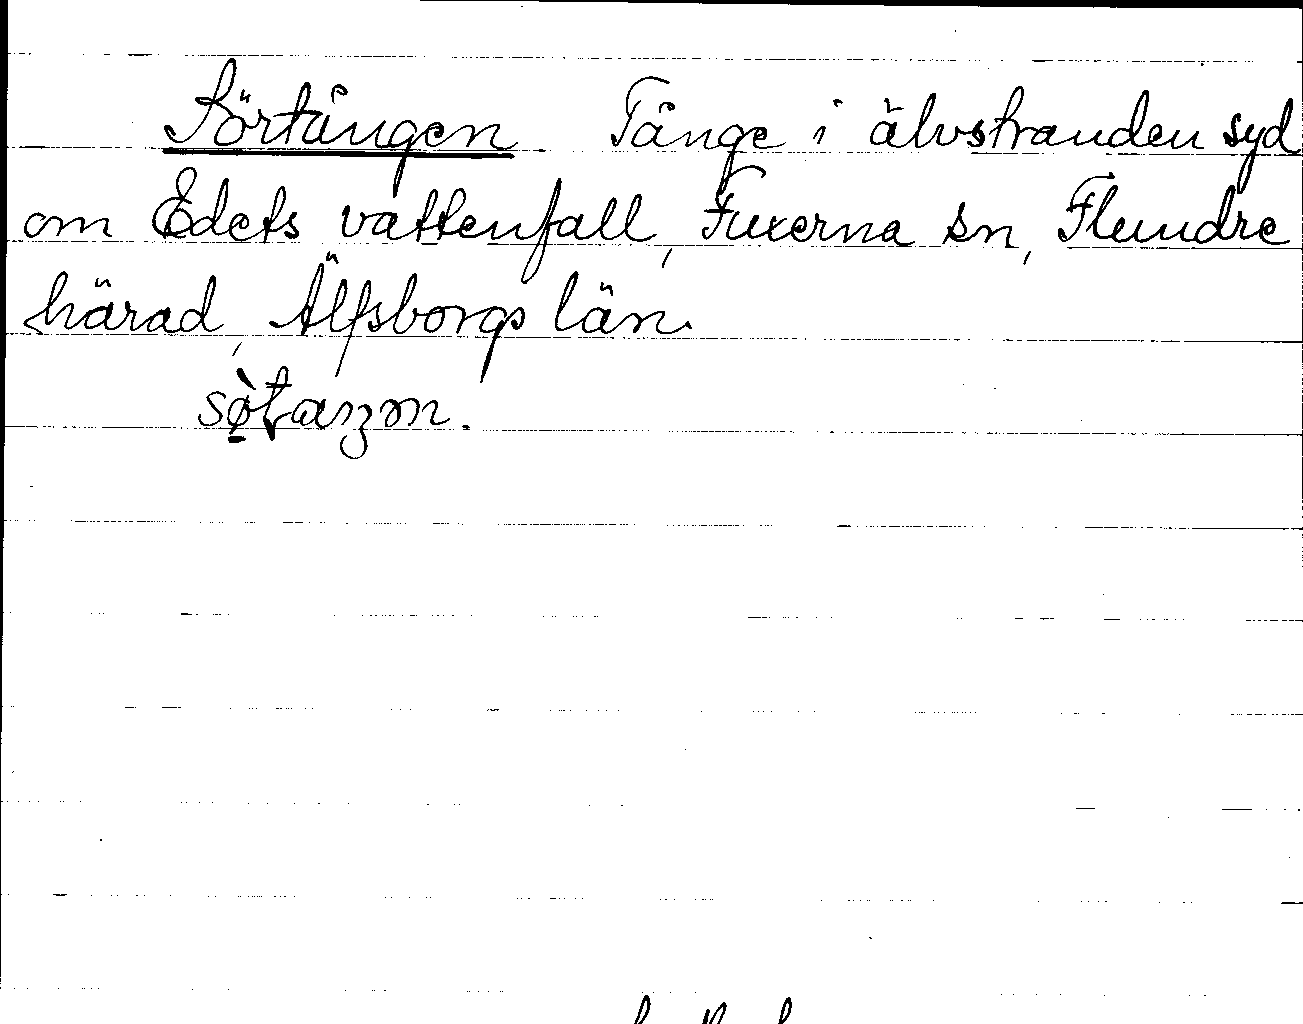 Sörtången Tånge i älvstranden syd
om Edets vattenfall, Fuxerna sn, Flundre
härad, Älfsborgs län.